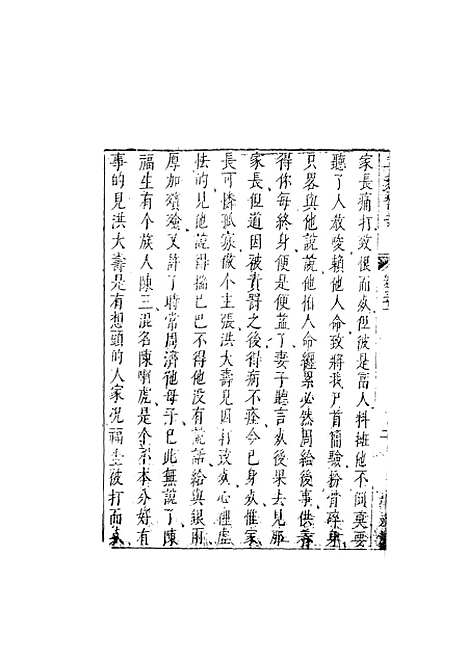 家長痛打致恨而死但彼是富人料摊他不倒莫要
聽了人教唆賴他人命致將我尸首簡驗粉骨碎身
只畧與他說說他怕人命纒累必然周給後事供養
得你每終身便是便益了妻子聽言死後果去見那
家長但道因被責罸之後得病不痊今已身死惟家
長可憐孤寡做个主張洪大壽見因打致死心裡虛
怯的見他說得揣已巴不得他没有說話給與銀兩
厚加殯殮又許了時常周濟他母子已此無說了陳
福生有个族人陳三混名陳喇虎是个不本分好有
事的見洪大壽是有想頭的人家况福生被打而死